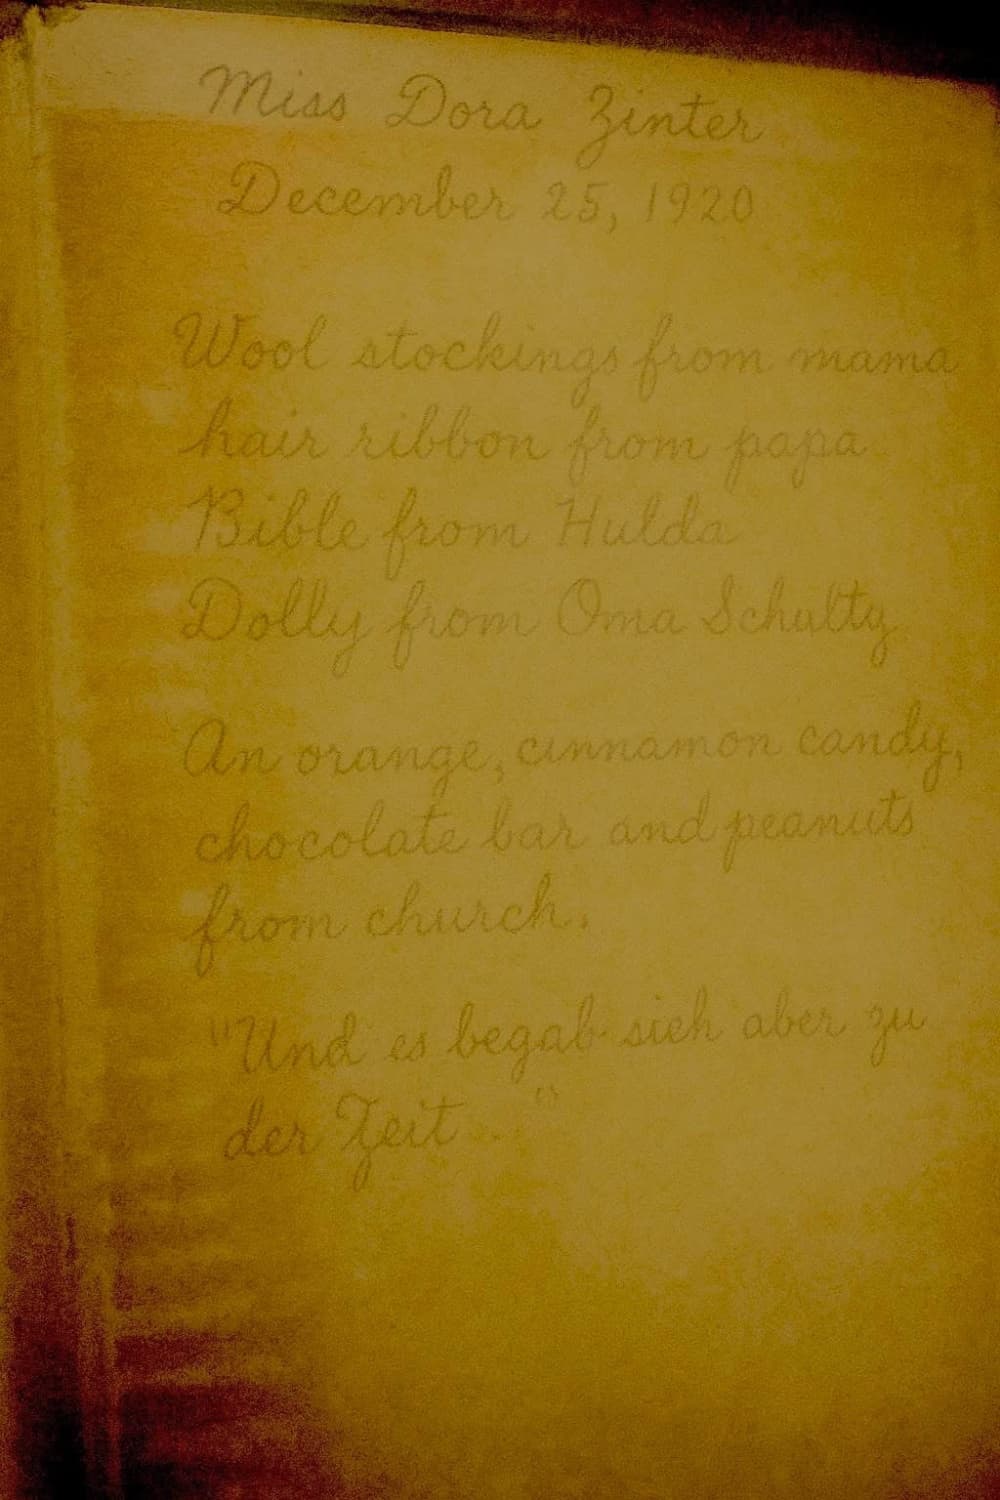 Miss Dora Zinter
December 25, 1920
Wool stockings from mama
hair ribbon from papa
Bible from Hulda
Dolly from Oma Schultz
An orange, cinnamon candy,
chocolate bar and peanuts
from church.
"Und es begab sich aber zu
der Zeit . . . "